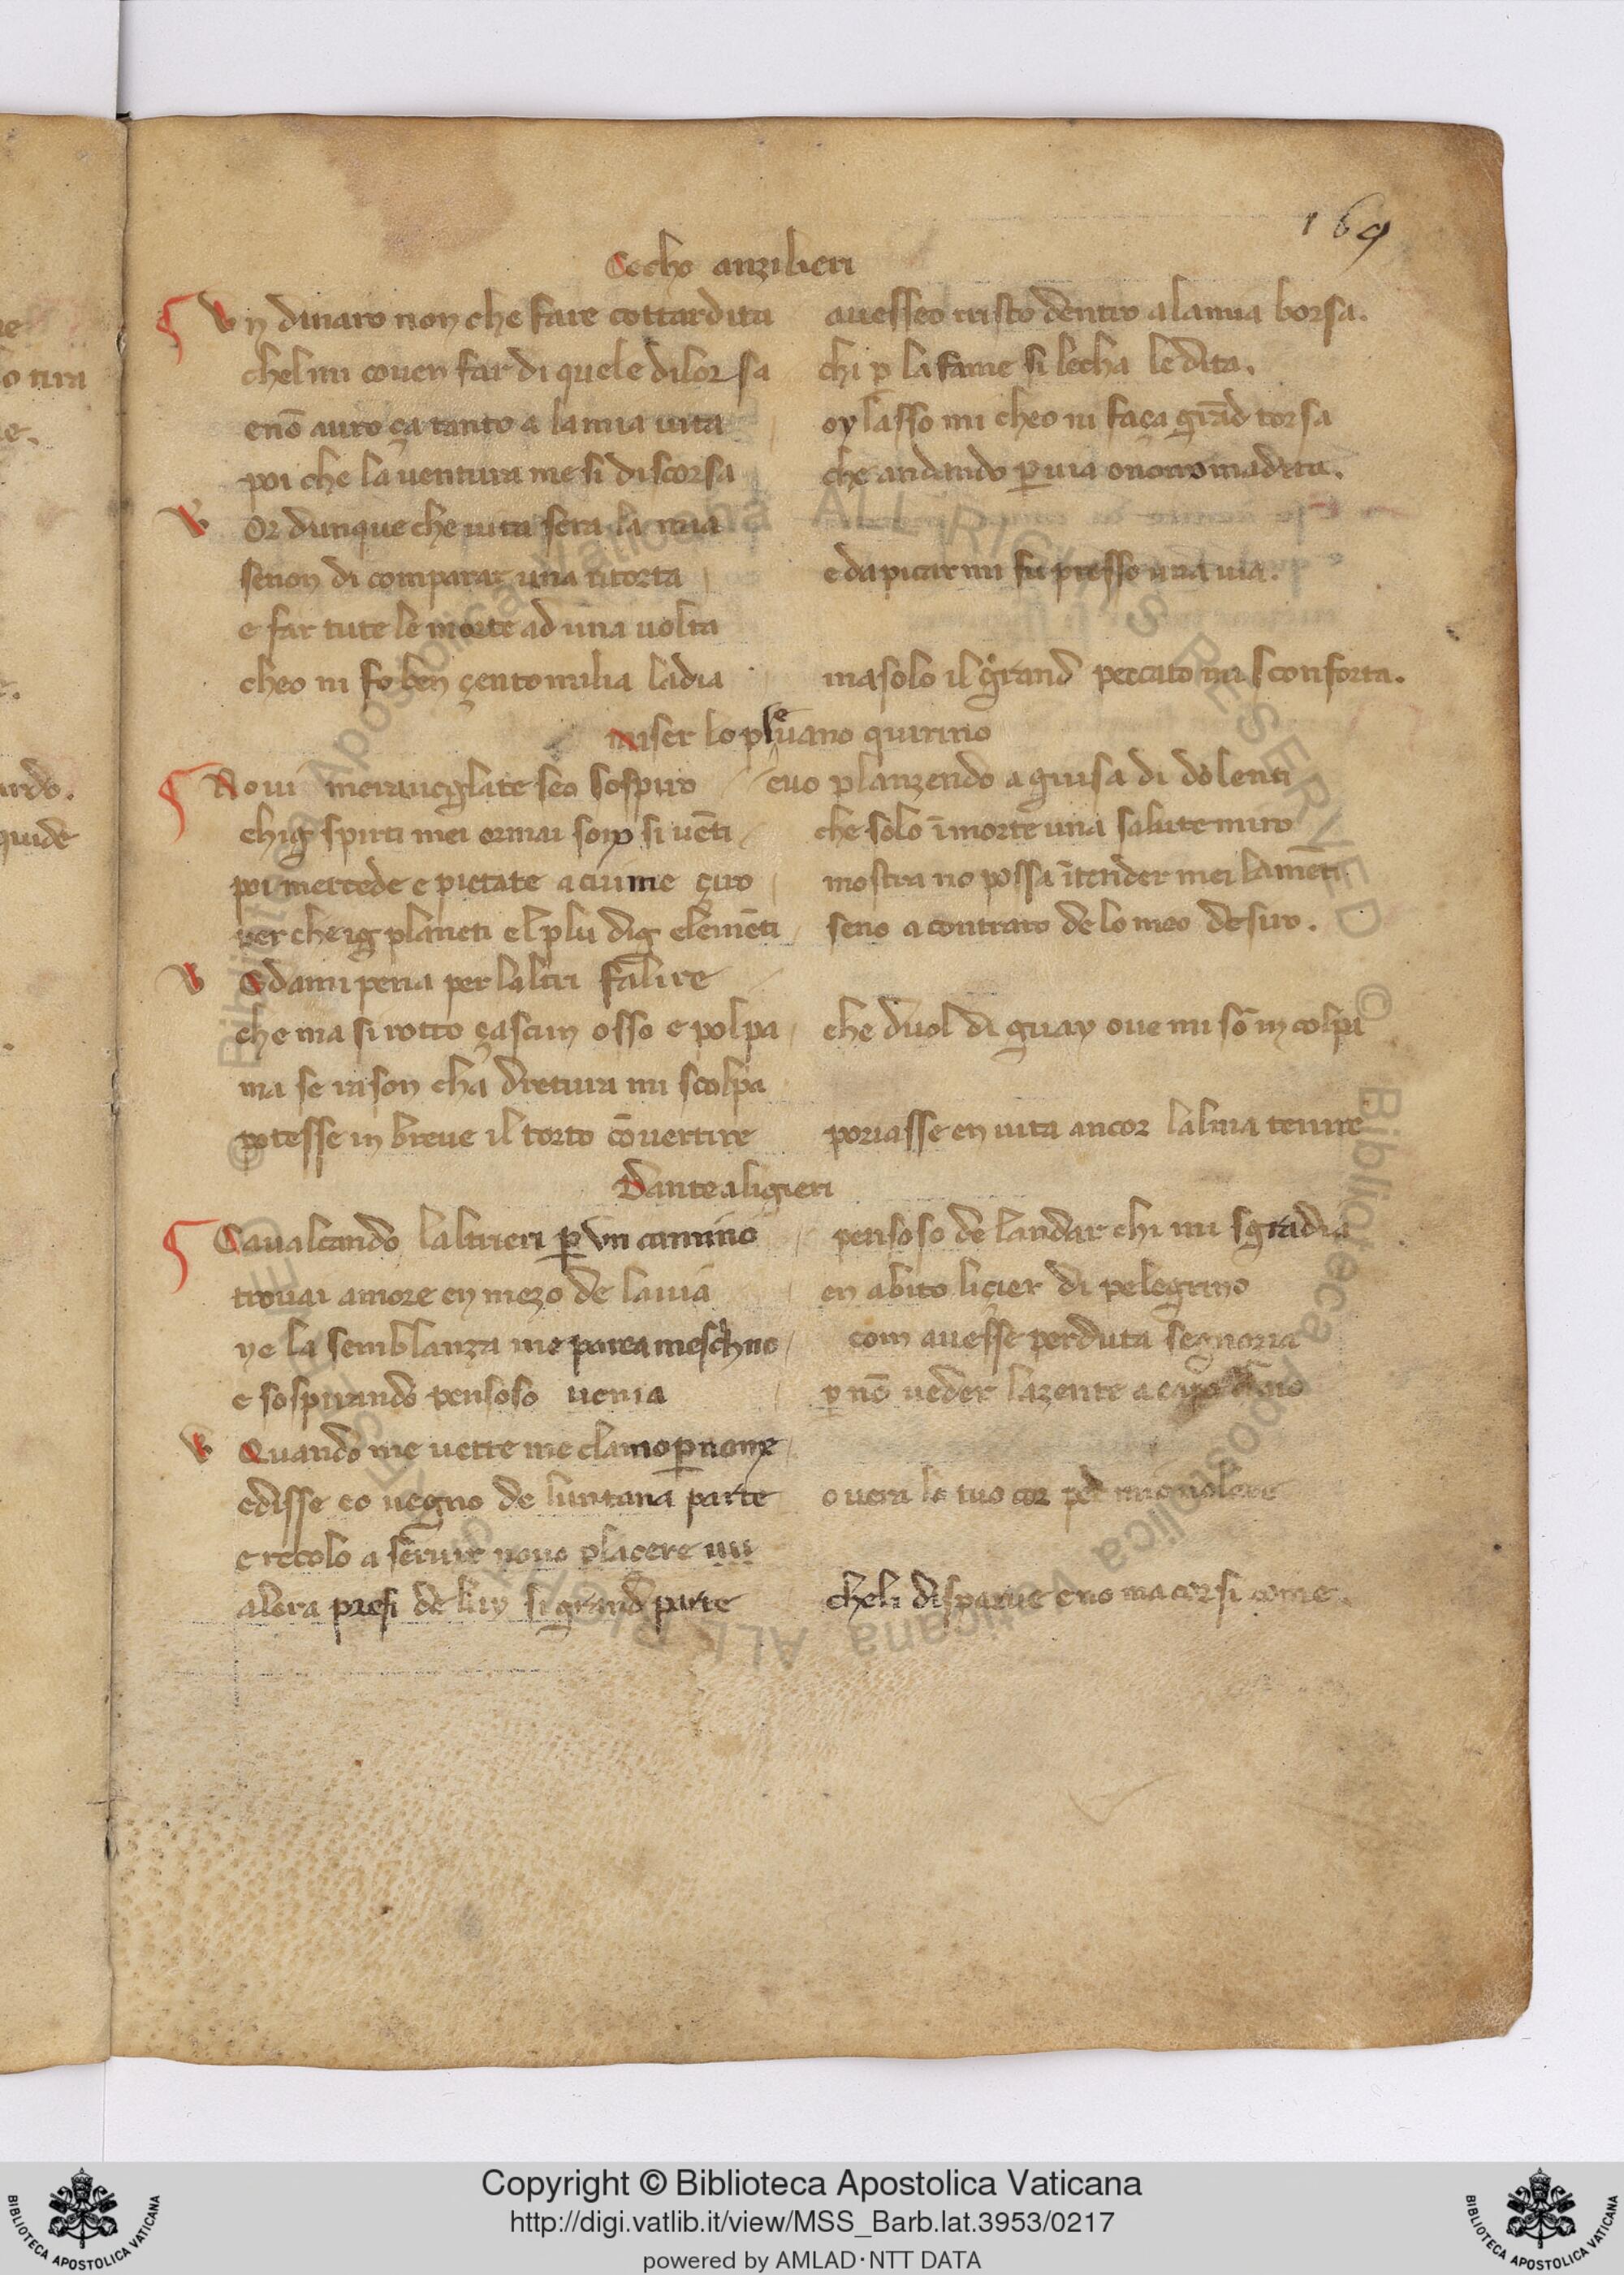 169
Cecho anzilieri
Vn dinaro non che fare cottardita auesseo tristo dentro ala mia borsa.
chel mi couen far di quele dilorsa chi p̱ la fame si lecha le dita.
enō auro ça tanto a la mia uita oy lasso mi cheo ni faça grād torsa
poi che la uentura me si discorsa che andando p̱ uia onomo madita.
V Or dunque che uita sera la mia
senon di comparar una ritorta e dapicarmi fu presso una uia.
e far tute le morte ad una uolta
cheo ni fo ben çentomilia ladia ma solo il grand peccato mi sconforta.
miser lo pleuano quirino
Non meraueglate seo sospiro euo planzendo a guisa di dolenti
chig spirti mei ormai sonp si uēti che solo ī morte una salute miro
poi mercede e pietate a cui me çiro mostra no possa ītender mei lamēti
per che ig planeti el plu dig elemēti seno a contraro de lo meo desiro.
V Edami pena per laltri falire
che ma si rotto çascun osso e polpa che duol di guay oue mi sō in colpi
ma se rason cha dretura mi scolpa
potesse in breue il torto cōuertire poriasse en uita ancor lalma tenire
Dante aligieri
Caualcando laltrieri p̱ vn camino pensoso de landar chi mi sgradia
trouai amore en mezo de la uia en abito liçier di pelegrino
ne la semblanza me parea meschino com auesse perduta segnoria
e sospirando pensoso uenia p̱ nō ueder la zente a capo
V Quando me uette me clamo p̱ nome
edisse eo uegno de luntana parte o uera lo tuo cor per
e recolo a seruir nouo placere
alora presi de luy si grand parte cheli disparue e no ma corsi come.
Copyright © Biblioteca Apostolica Vaticana
http://digi.vatlib.it/view/MSS_Barb.lat.3953/0217
powered by AMLAD·NTT DATA
BIBLIOTECA APOSTOLICA VATICANA
BIBLIOTECA APOSTOLICA VATICANA
© Biblioteca Apostolica Vaticana ALL RIGHTS RESERVED
© Biblioteca Apostolica Vaticana ALL RIGHTS RESERVED